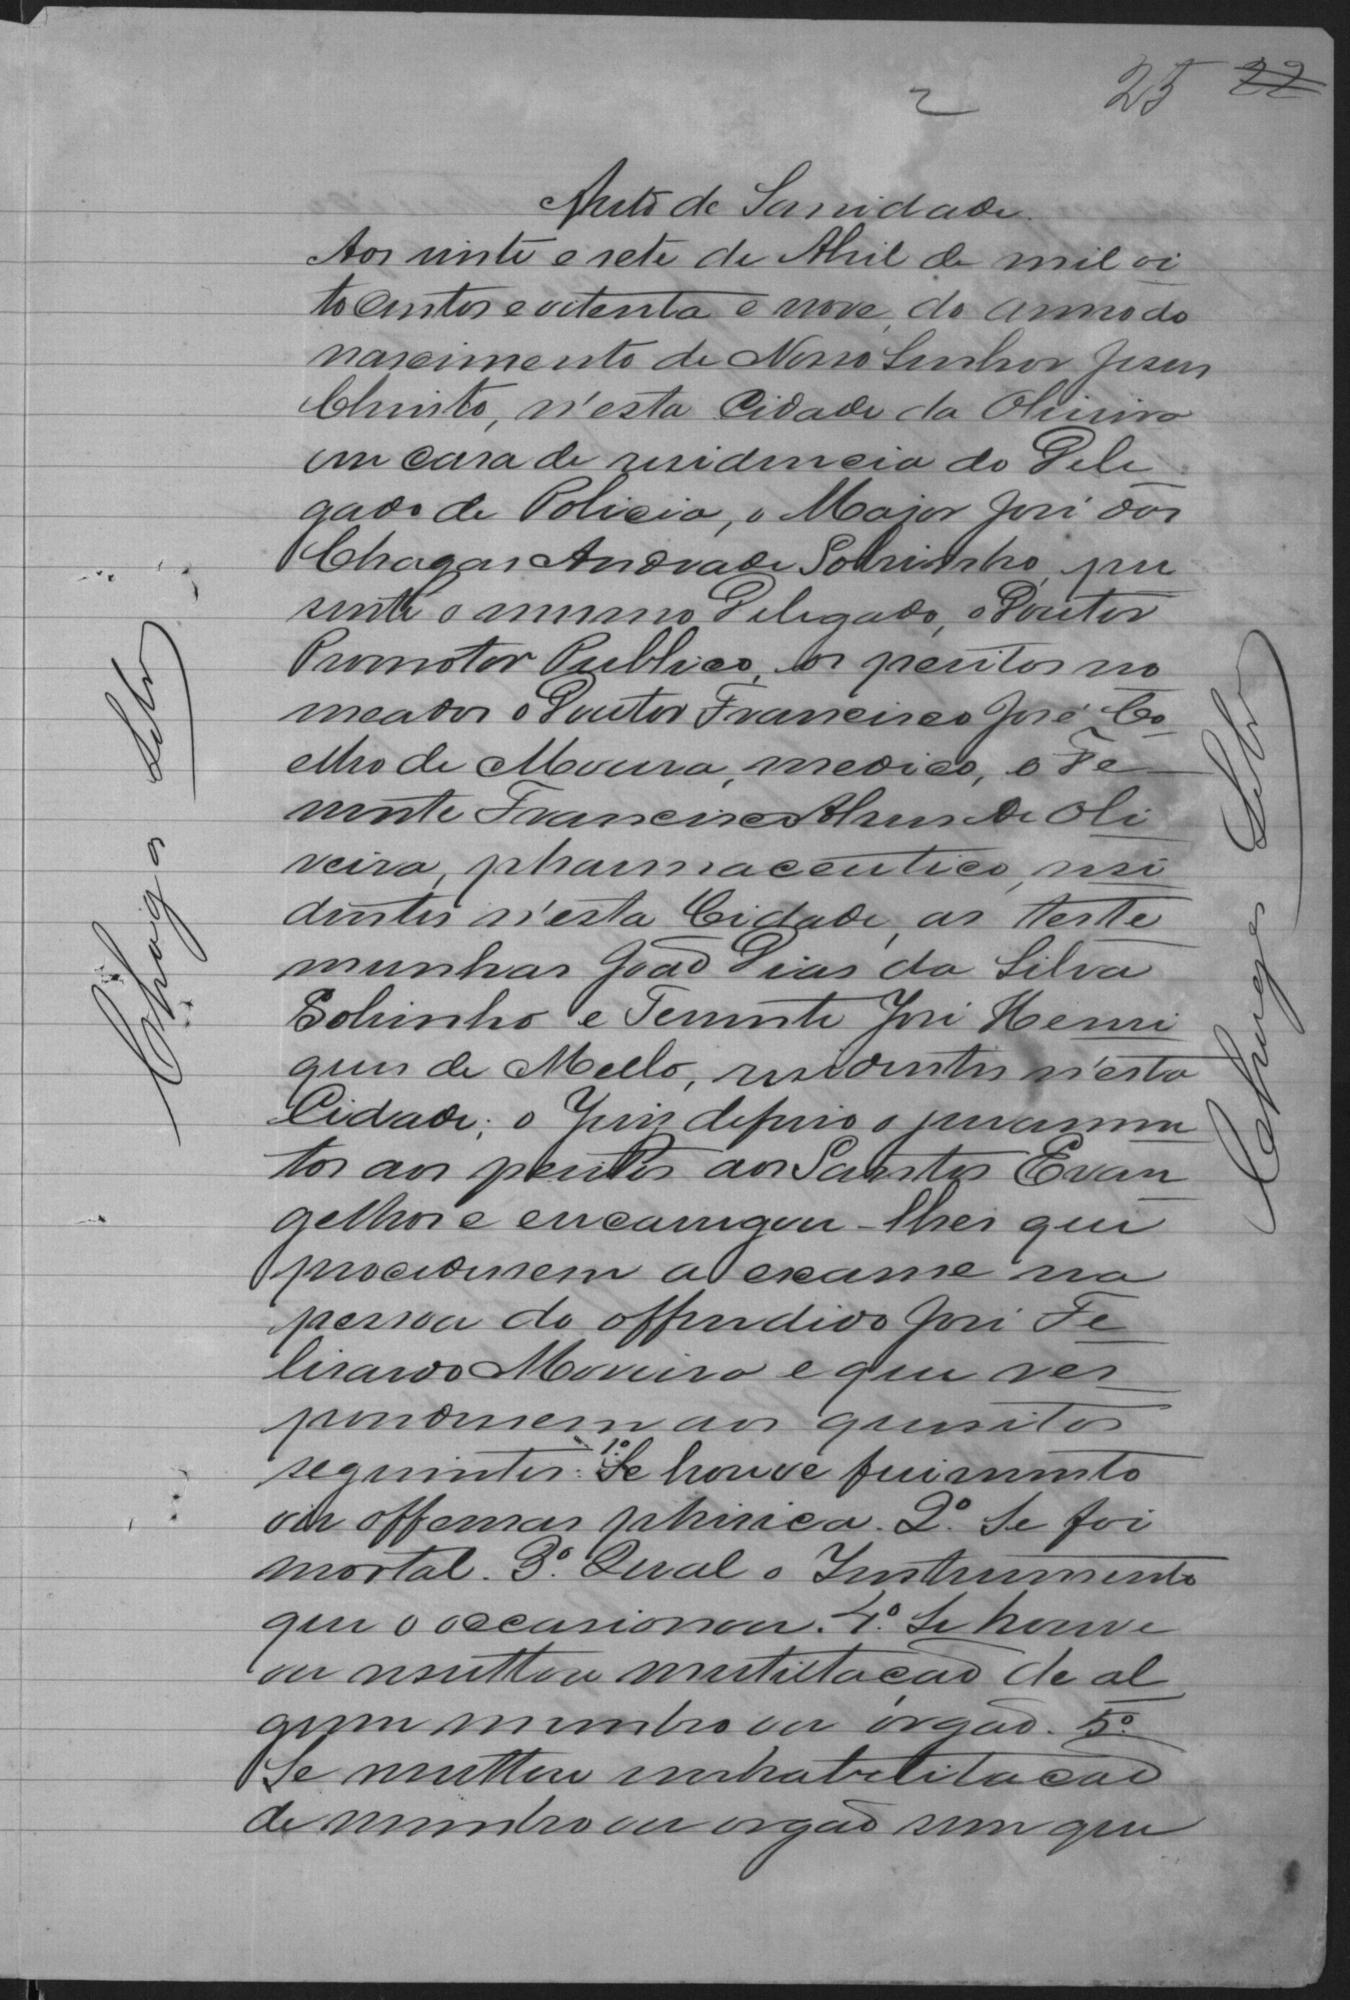 25 22
Auto de Sanidade.
Aos vinte e sete de Abril de mil oi
to centos e oitenta e nove, do anno do
nascimento de Nosso Senhor Jesus
Christo, n'esta Cidade da Oliveira
em casa de residencia do Dele
gado de Policia, o Major José das
Chagas Andrade Sobrinho, pre
sente o mesmo Delegado, o Doutor
Promotor Publico, os peritos no
meados o Doutor Francisco José Co
elho de Moura, medico, e Te
nente Francisco Alves de Oli
veira, pharmaceutico, resi
dentes n'esta Cidade, as teste
munhas João Dias da Silva
Sobrinho e Tenente José Henri
ques de Mello, residentes n'esta
Cidade; o Juiz deferio o juramen
tos aos peritos aos Santos Evan
gelhos e encarregou-lhes que
procedessem a exame na
pessoa do offendido José Fe
lisardo Moreira e que res
pondessem aos quesitos
seguintes: 1º Se houve ferimento
ou offensas phisica. 2º. Se foi
mortal. 3º. Qual o Instrumento
que o occasionou. 4º. Se houve
ou resultou mutilação de al
gum membro ou órgão. 5º.
Se resultou inhabilitacão
de membro ou orgão sem que
Chagas Sobro
Chagas Sobro